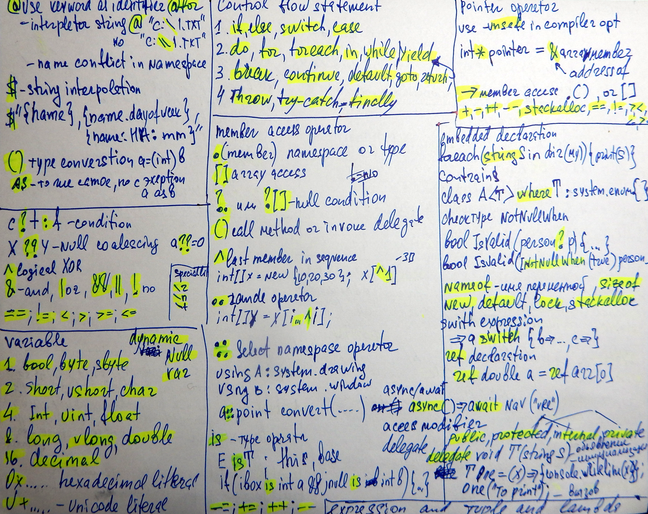 @use keyword as identifier @for
- interpretor string @ "C:\1.TXT"
no "C:\\1.TXT"
- name conflict in namespace
$ - string interpolation
$"{name}, {name.dayofweek},
{name:HH:mm}"
() type conversion a=(int)b
AS - to me same, no exception
a as b
c ? t : A - condition
X ?? Y - Null coalescing a ??=0
^ logical XOR
& - and, | or, &&, ||, ! no
==; !=; <; >; >=; <=
special
variable dynamic
Null
var
1. bool, byte, sbyte
2. Short, ushort, char
4. Int, uint, float
8. long, ulong, double
16. decimal
0x.... hexadecimal literal
U+.... - Unicode literal
Control flow statement
1. if, else, switch, case
2. do, for, foreach, in, while, yield
3. break, continue, default, goto, return
4 Throw, try-catch-finally
member access operator
.(member) namespace or type
[] array access
?. или ?[] - null condition
() call method or invoke delegate
^ last member in sequence -30
int[] x = new {10,20,30}; x[^1]
.. range operator
:: Select namespase operator
using A: system.drawing
using B: system.window
a::point convert(....)
is - type operator
E is T, this, base
if (ibox is int a && null is int b) {..}
async/await
async() => await Nav("URL")
access modifier
public, protected, internal, private
delegate
delegate void T(string S) - объявление
T one = (X) => {console.writeline(x)};
one("to print"); - вызов
pointer operator
use unsafe in compiler opt
int* pointer = & array member
address of
-> member access (), or []
+, -, ++, --, stackalloc, ==, !=, >, <,
embedded declaration
foreach(string S in dir2(my)) {print(S)}
constraing
class A<T> where T: system.enum{}
check type NotNullWhen
bool IsValid(person? p) {...}
bool IsValid([NotNullWhen(true) person
nameof - имя переменной, sizeof
New, default, lock, stackalloc
swith expression
=> a switch {b=>..., c=>}
ref declaration
ref double a = ref arr[0]
expression and type and lambda